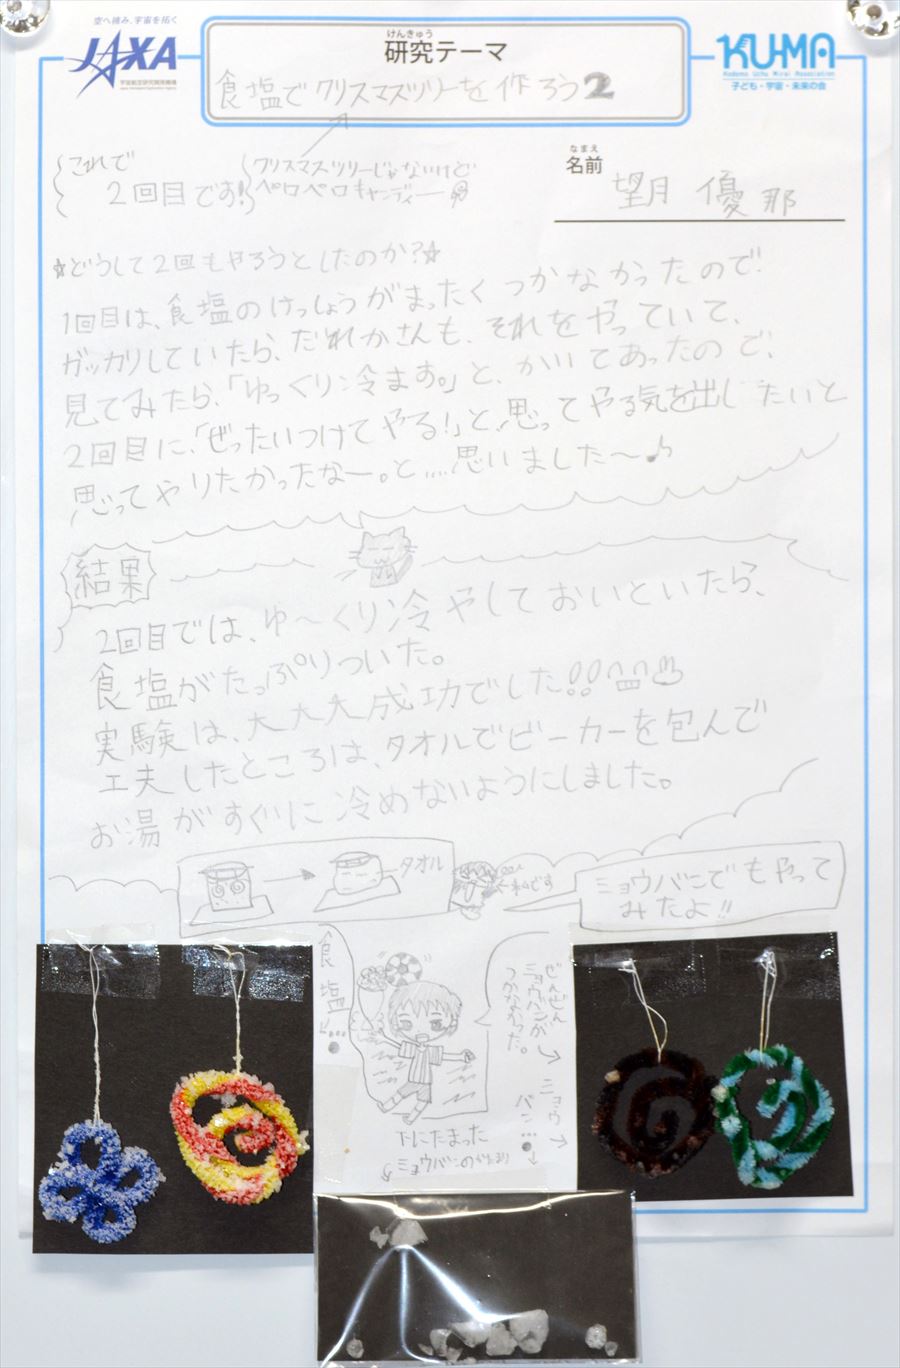 空へ挑み、宇宙を拓く
JAXA
宇宙航空研究開発機構
Japan Aerospace Exploration Agency
けんきゅう
研究テーマ
食塩でクリスマスツリーを作ろう2
KU-MA
Kodomo Uchu Mirai Association
子ども・宇宙・未来の会
これで
2回目です!
クリスマスツリーじゃないけど
ペロペロキャンディー
なまえ
名前
望月 優那
☆どうして2回もやろうとしたのか?☆
1回目は、食塩のけっしょうがまったくつかなかったので
ガッカリしていたら、だれかさんも、それをやっていて、
見てみたら、「ゆっくり冷ます。」と、かいてあったので、
2回目に、「ぜったいつけてやる!」と、思ってやる気を出したいと
思ってやりたかったなー。と…思いました〜♪
結果
2回目では、ゆ〜くり冷やしておいといたら、
食塩がたっぷりついた。
実験は、大大大成功でした!!
工夫したところは、タオルでビーカーを包んで
お湯がすぐに冷めないようにしました。
タオル
私です
ミョウバンでもやって
みたよ!!
食塩
ぜんぜん
ミョウバンが
つかなかった。
ミョウ
バン
下にたまった
ミョウバンのかたまり